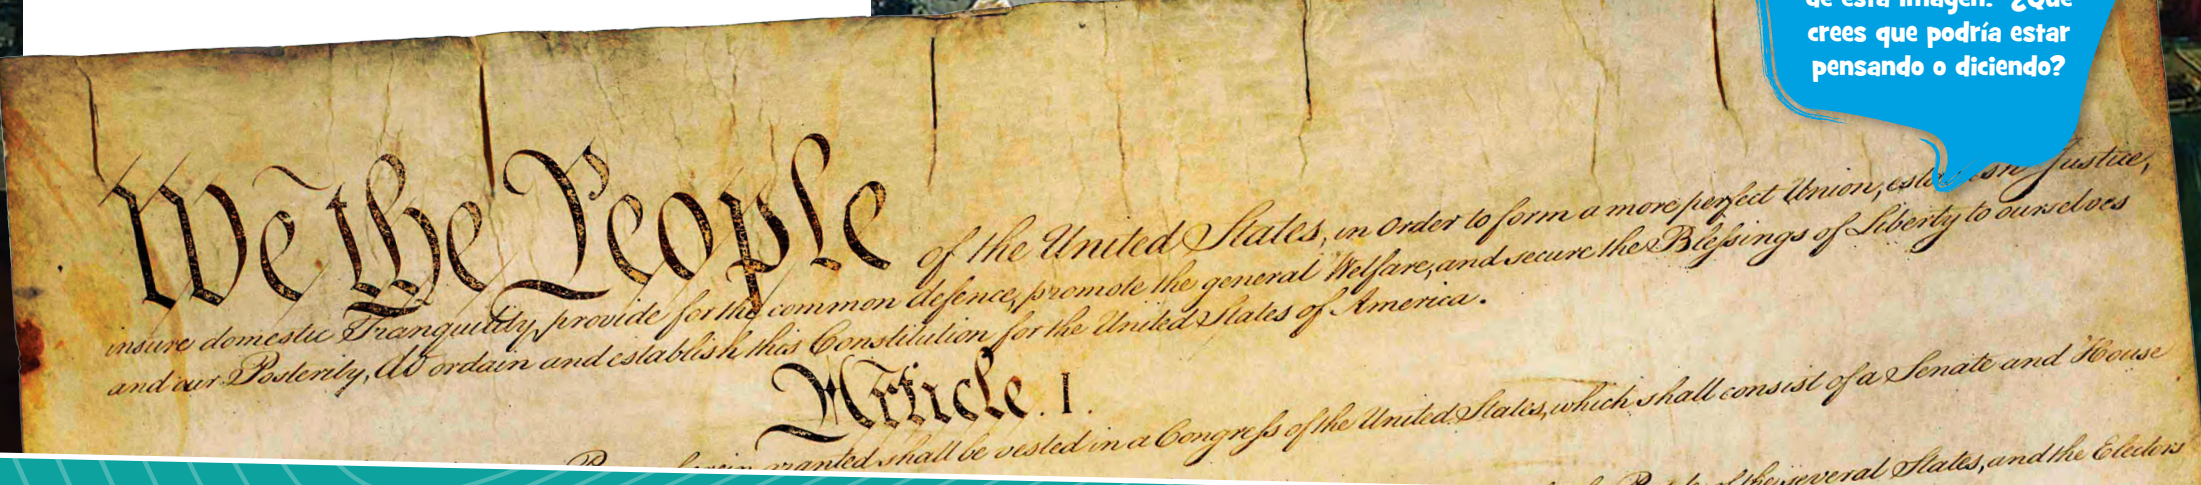 de esta imagen. ¿Qué
crees que podría estar
pensando o diciendo?
We the People of the United States, in Order to form a more perfect Union, Justice,
insure domestic Tranquility, provide for the common defence, promote the general Welfare, and secure the Blessings of Liberty to ourselves
and our Posterity, do ordain and establish this Constitution for the United States of America.
Article. I.
granted shall be vested in a Congress of the United States, which shall consist of a Senate and House
of the several States, and the Electors